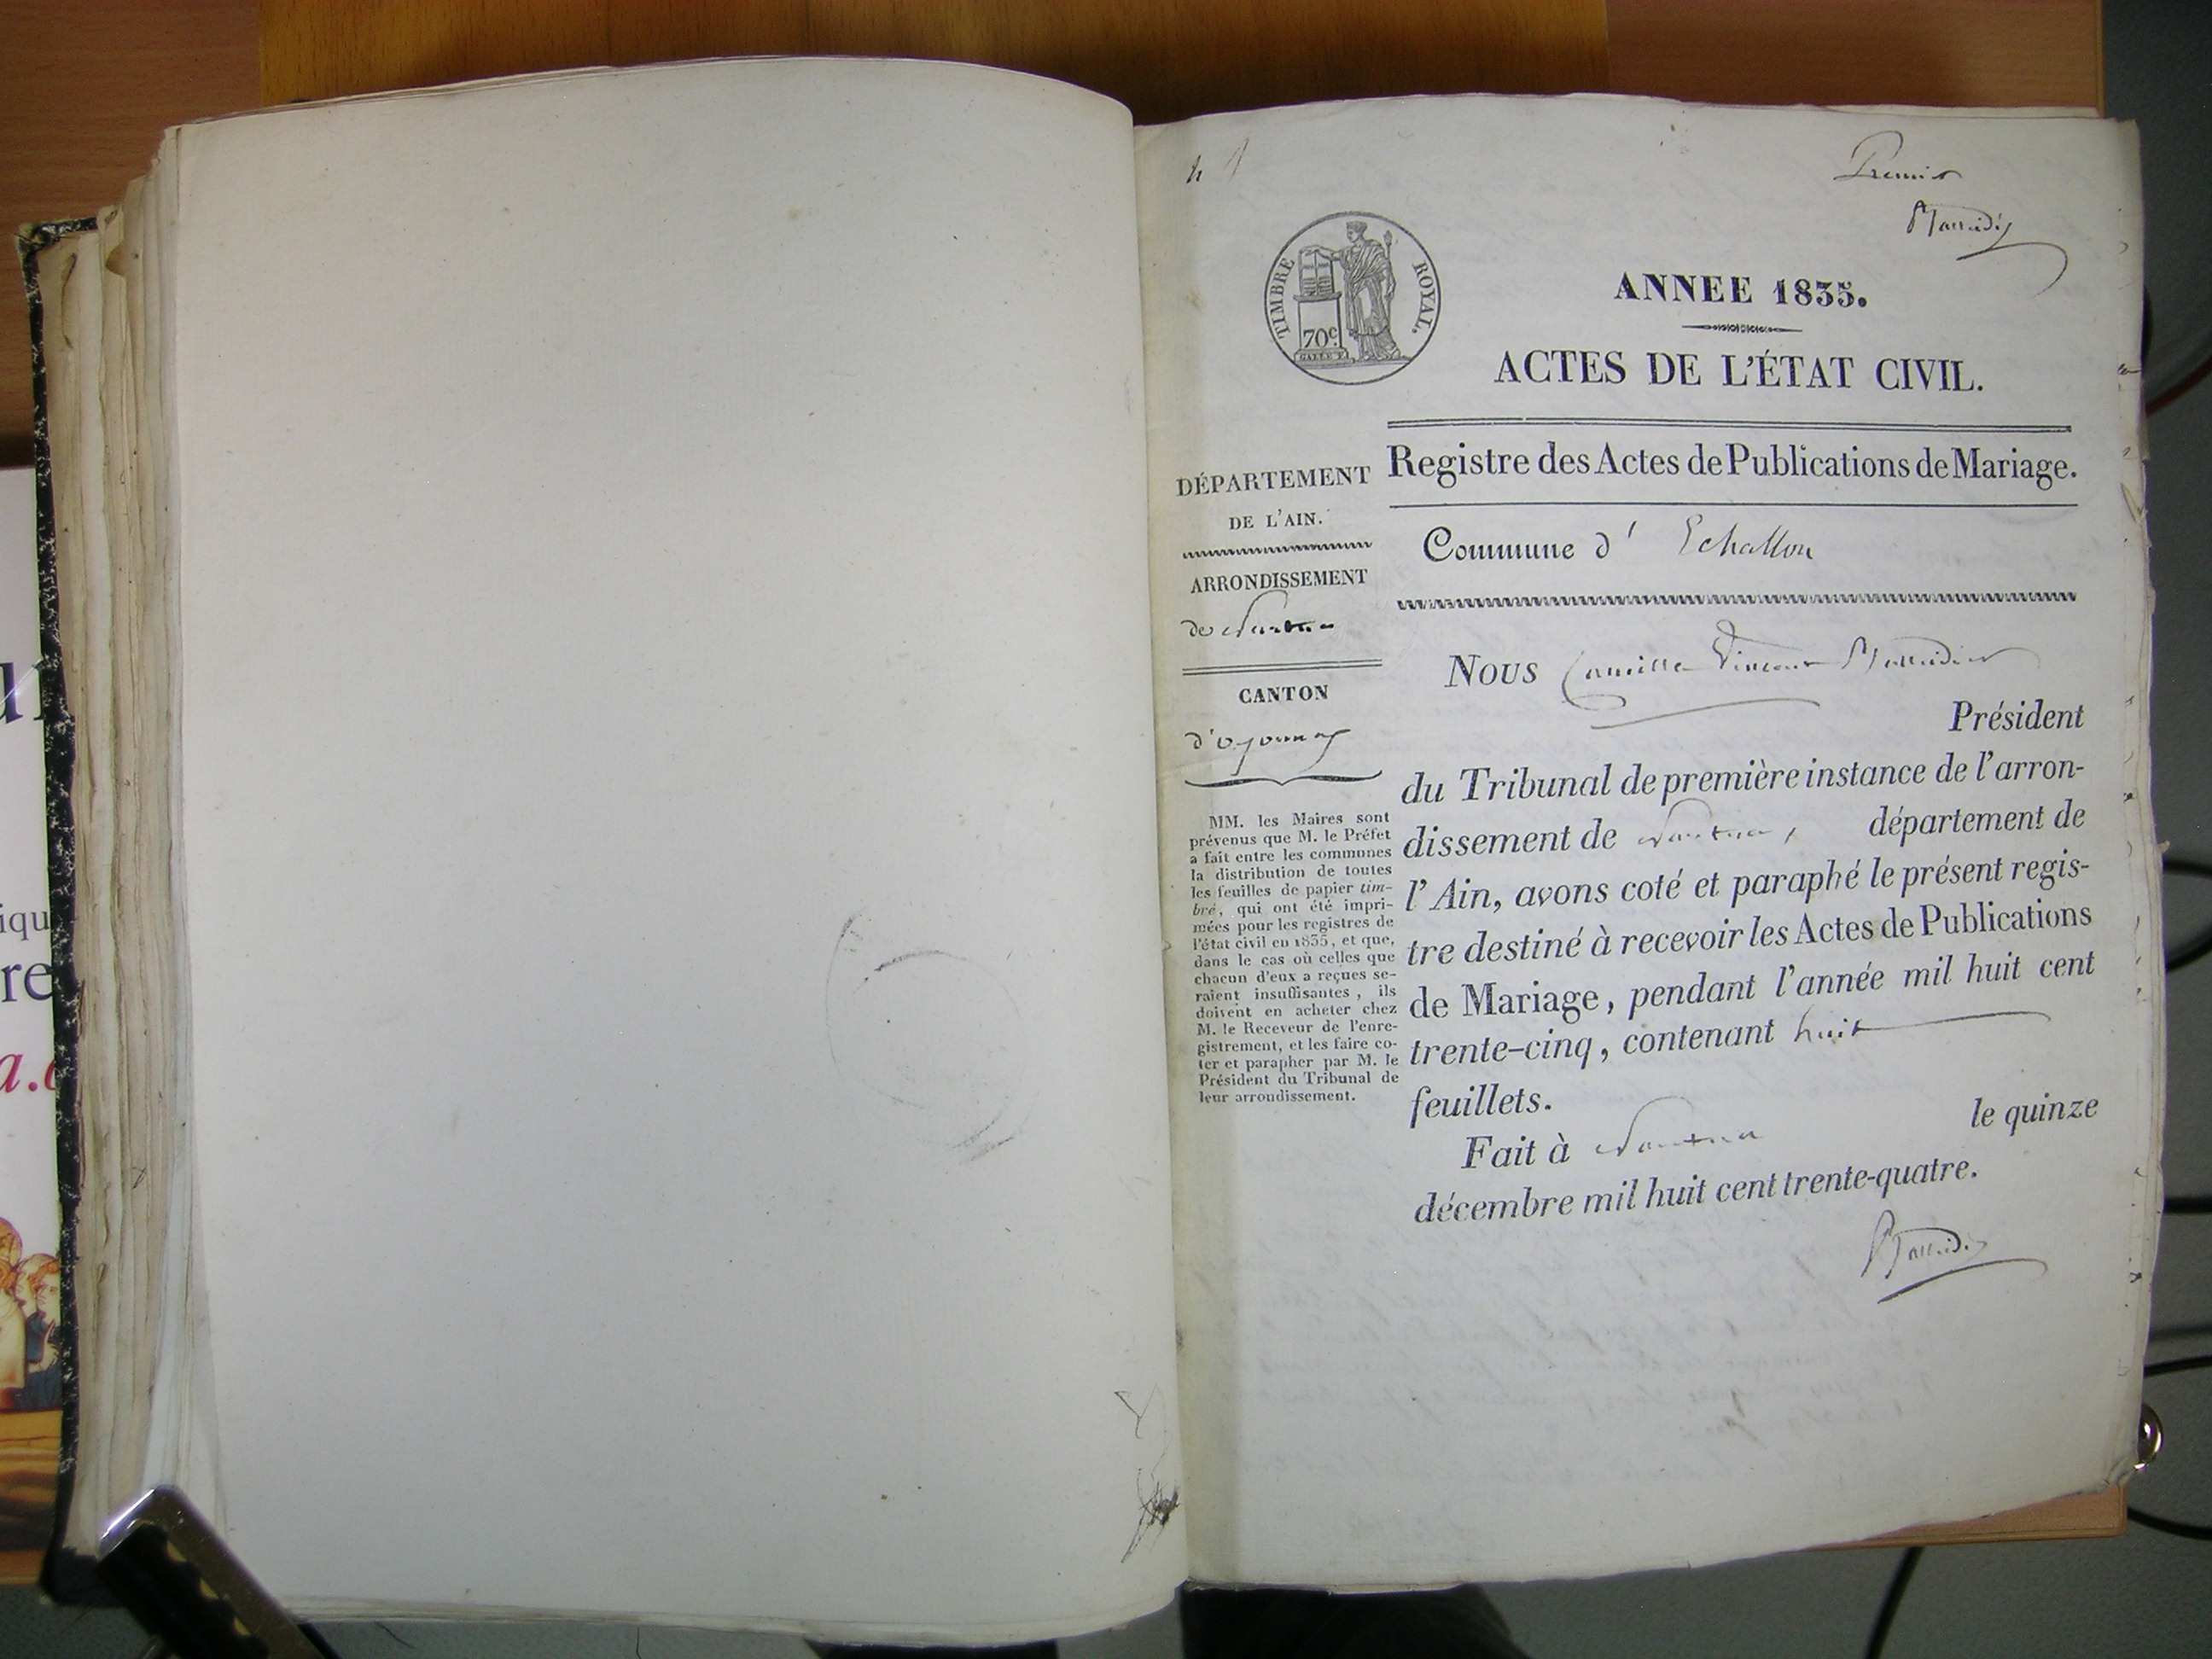 Premier
TIMBRE ROYAL.
70c.
ANNEE 1835.
ACTES DE L'ÉTAT CIVIL.
Registre des Actes de Publications de Mariage.
DÉPARTEMENT
DE L'AIN.
ARRONDISSEMENT
de Nantua
CANTON
d'oyonnax
MM. les Maires sont
prévenus que M. le Préfet
a fait entre les communes
la distribution de toutes
les feuilles de papier tim-
bré, qui ont été impri-
mées pour les registres de
l'état civil en 1835, et que,
dans le cas où celles que
chacun d'eux a reçues se-
raient insuffisantes, ils
doivent en acheter chez
M. le Receveur de l'enre-
gistrement, et les faire co-
ter et parapher par M. le
Président du Tribunal de
leur arrondissement.
Commune d' Echallon
Nous Camille Vincent
Président
du Tribunal de première instance de l'arron-
dissement de Nantua, département de
l'Ain, avons coté et paraphé le présent regis-
tre destiné à recevoir les Actes de Publications
de Mariage, pendant l'année mil huit cent
trente-cinq, contenant huit
feuillets.
Fait à Nantua le quinze
décembre mil huit cent trente-quatre.